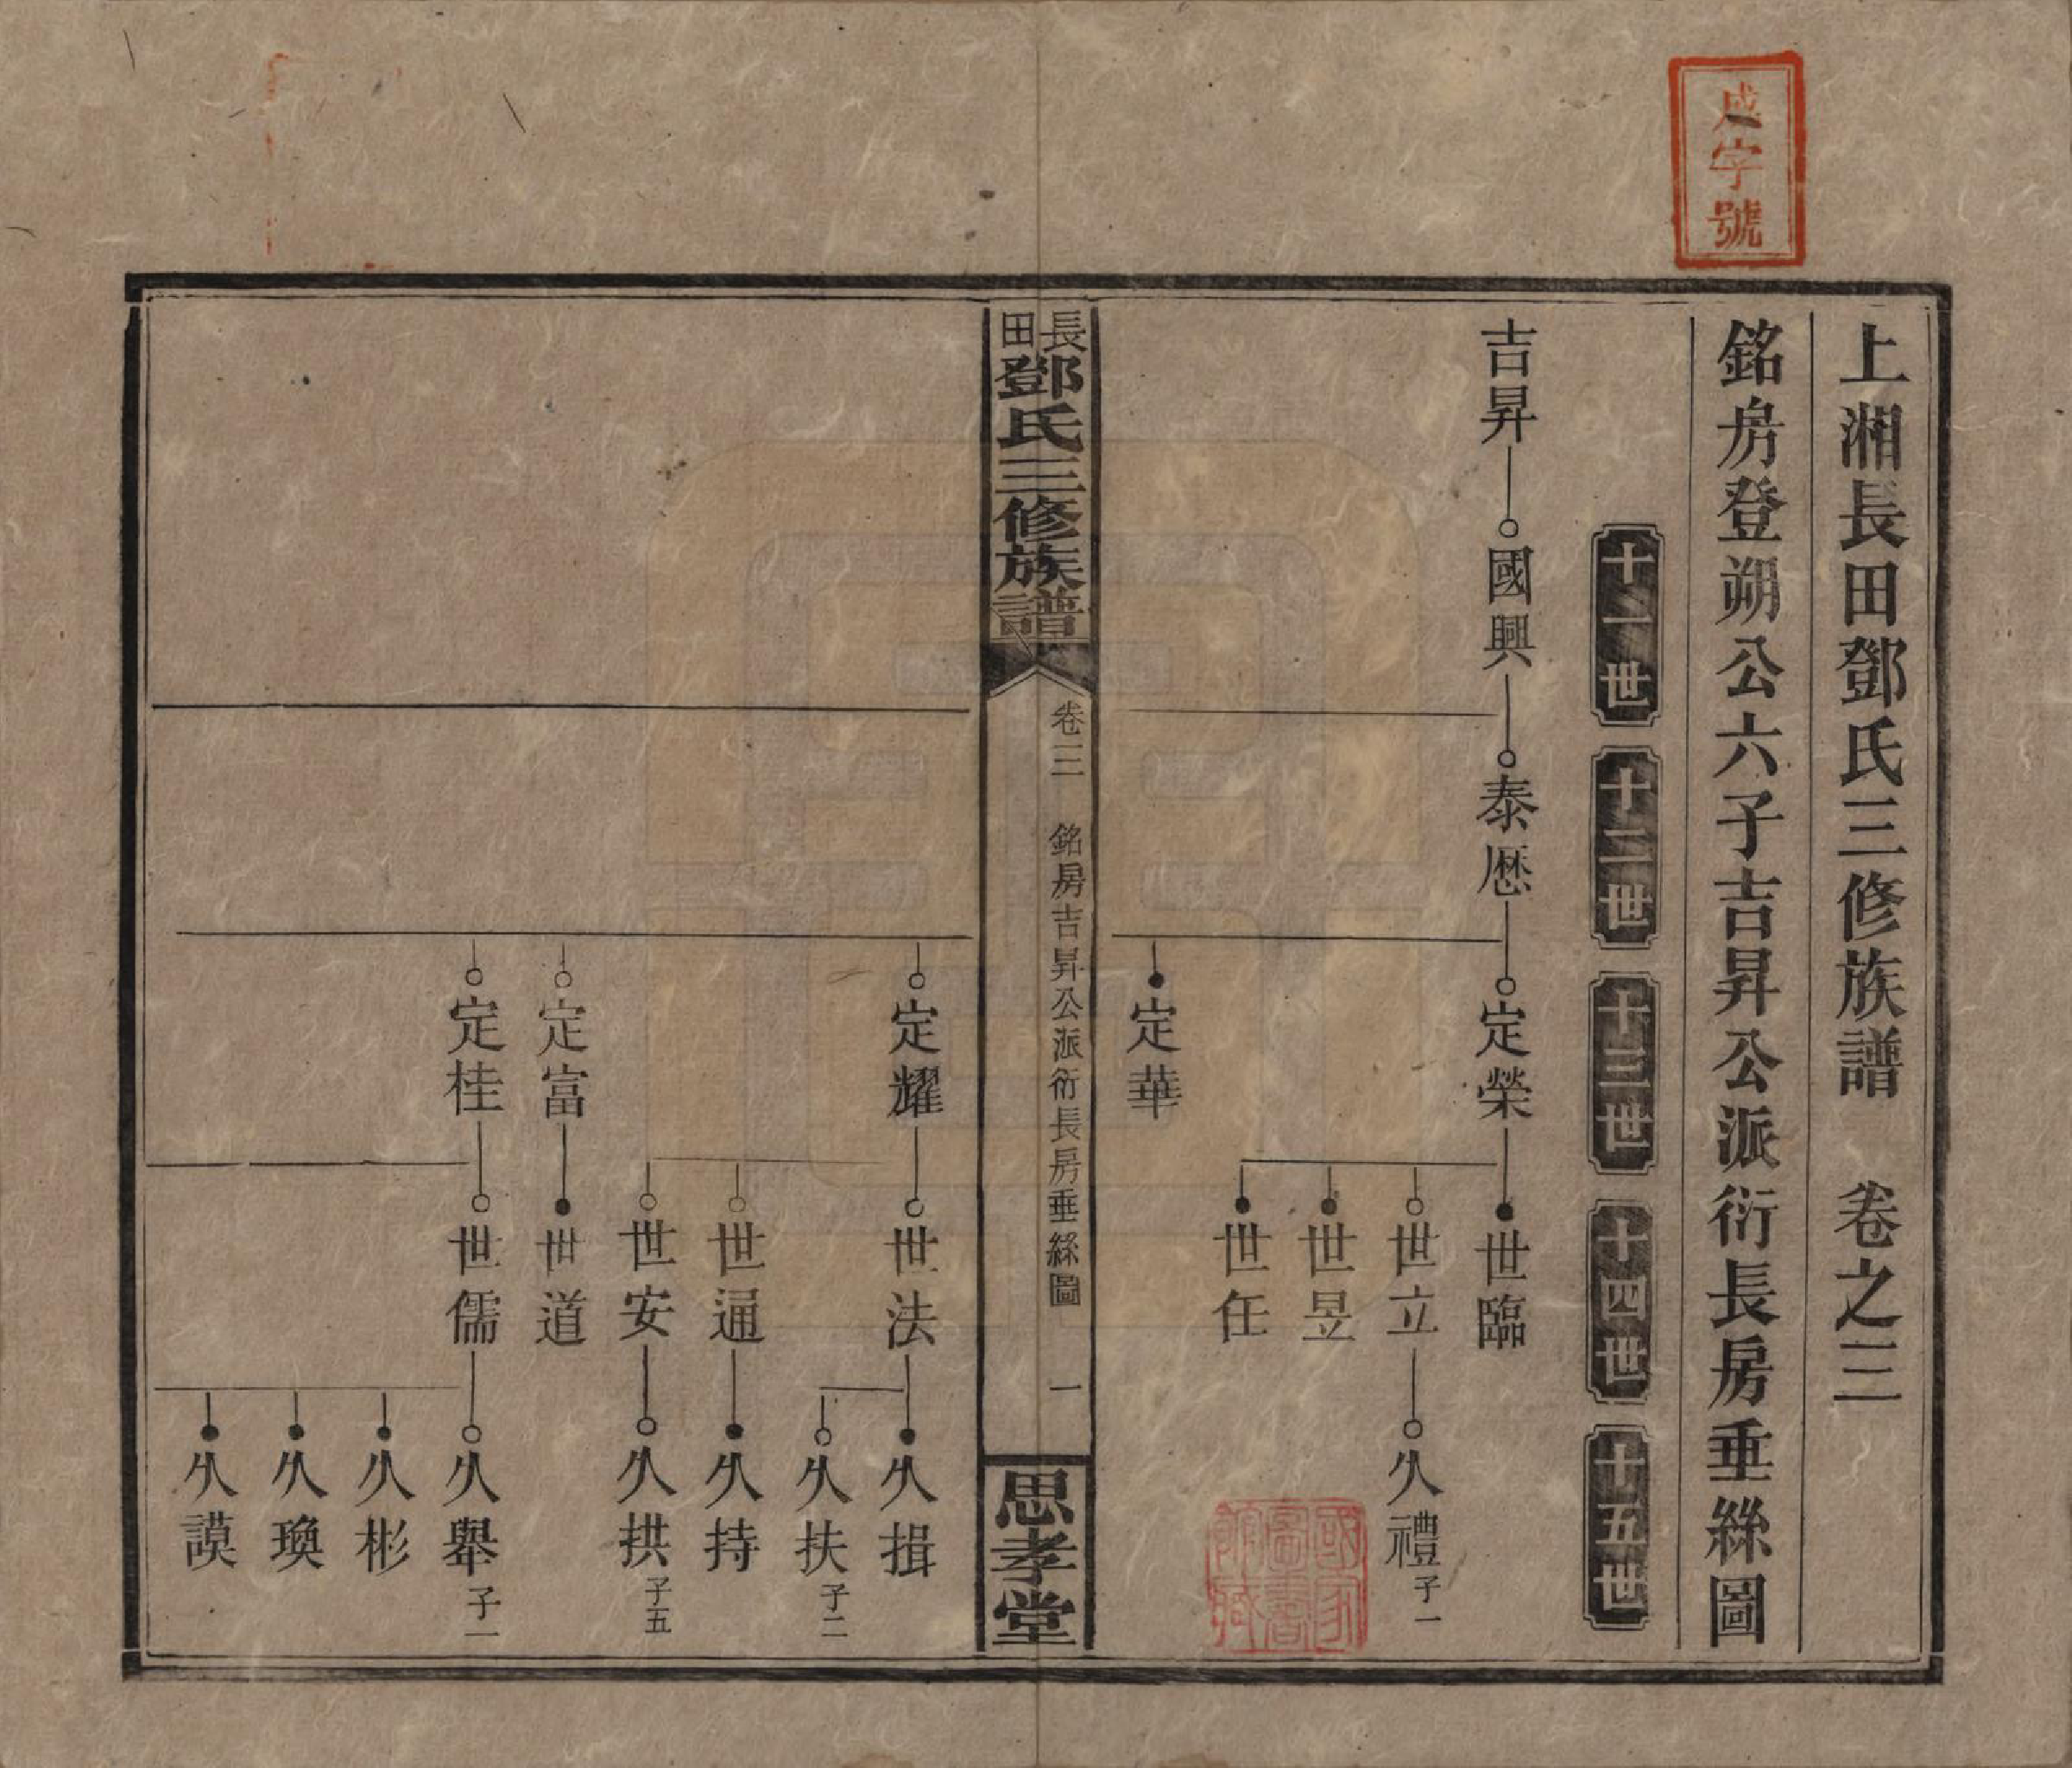 成字號
上湘長田鄧氏三修族譜　卷之三
銘房登朔公六子吉昇公派衍長房垂絲圖
十一世
十二世
十三世
十四世
十五世
吉昇
國興
泰歷
定榮
世臨
世立
久禮子一
世昱
世任
定華
國家
圖書
館藏
長田鄧氏三修族譜
卷三　銘房吉昇公派衍長房垂絲圖　一
思孝堂
定耀
世法
久揖
久扶子二
世通
久持
世安
久拱子五
定富
世道
定桂
世儒
久舉子一
久彬
久瑍
久謨